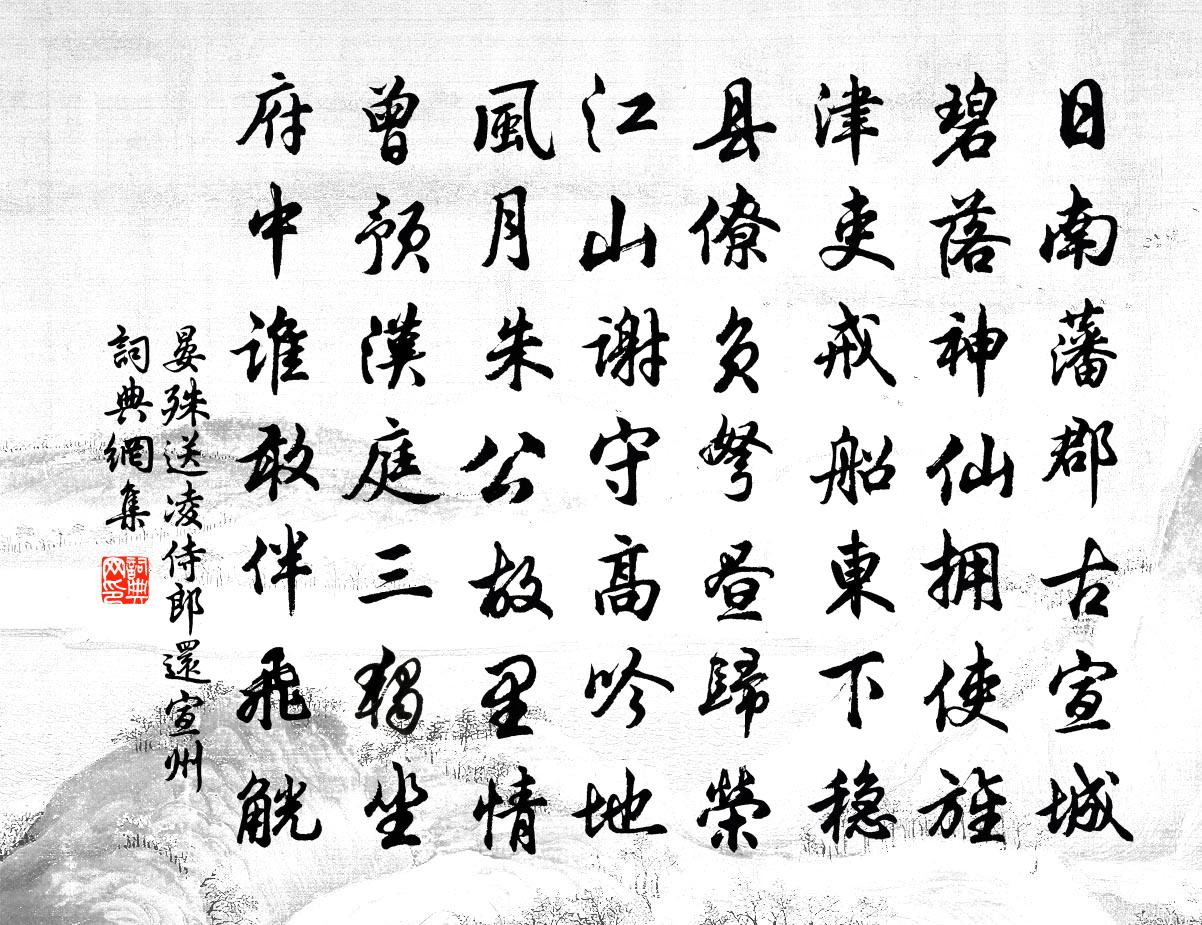 日南藩郡古宣城
碧落神仙拥使旌
津吏戒船東下穏
县僚負弩昼歸榮
江山謝守高吟地
風月朱公故里情
曾预漢庭三獨坐
府中誰敢伴飛觥
晏殊送凌侍郎還宣州
詞典網集
詞典网印